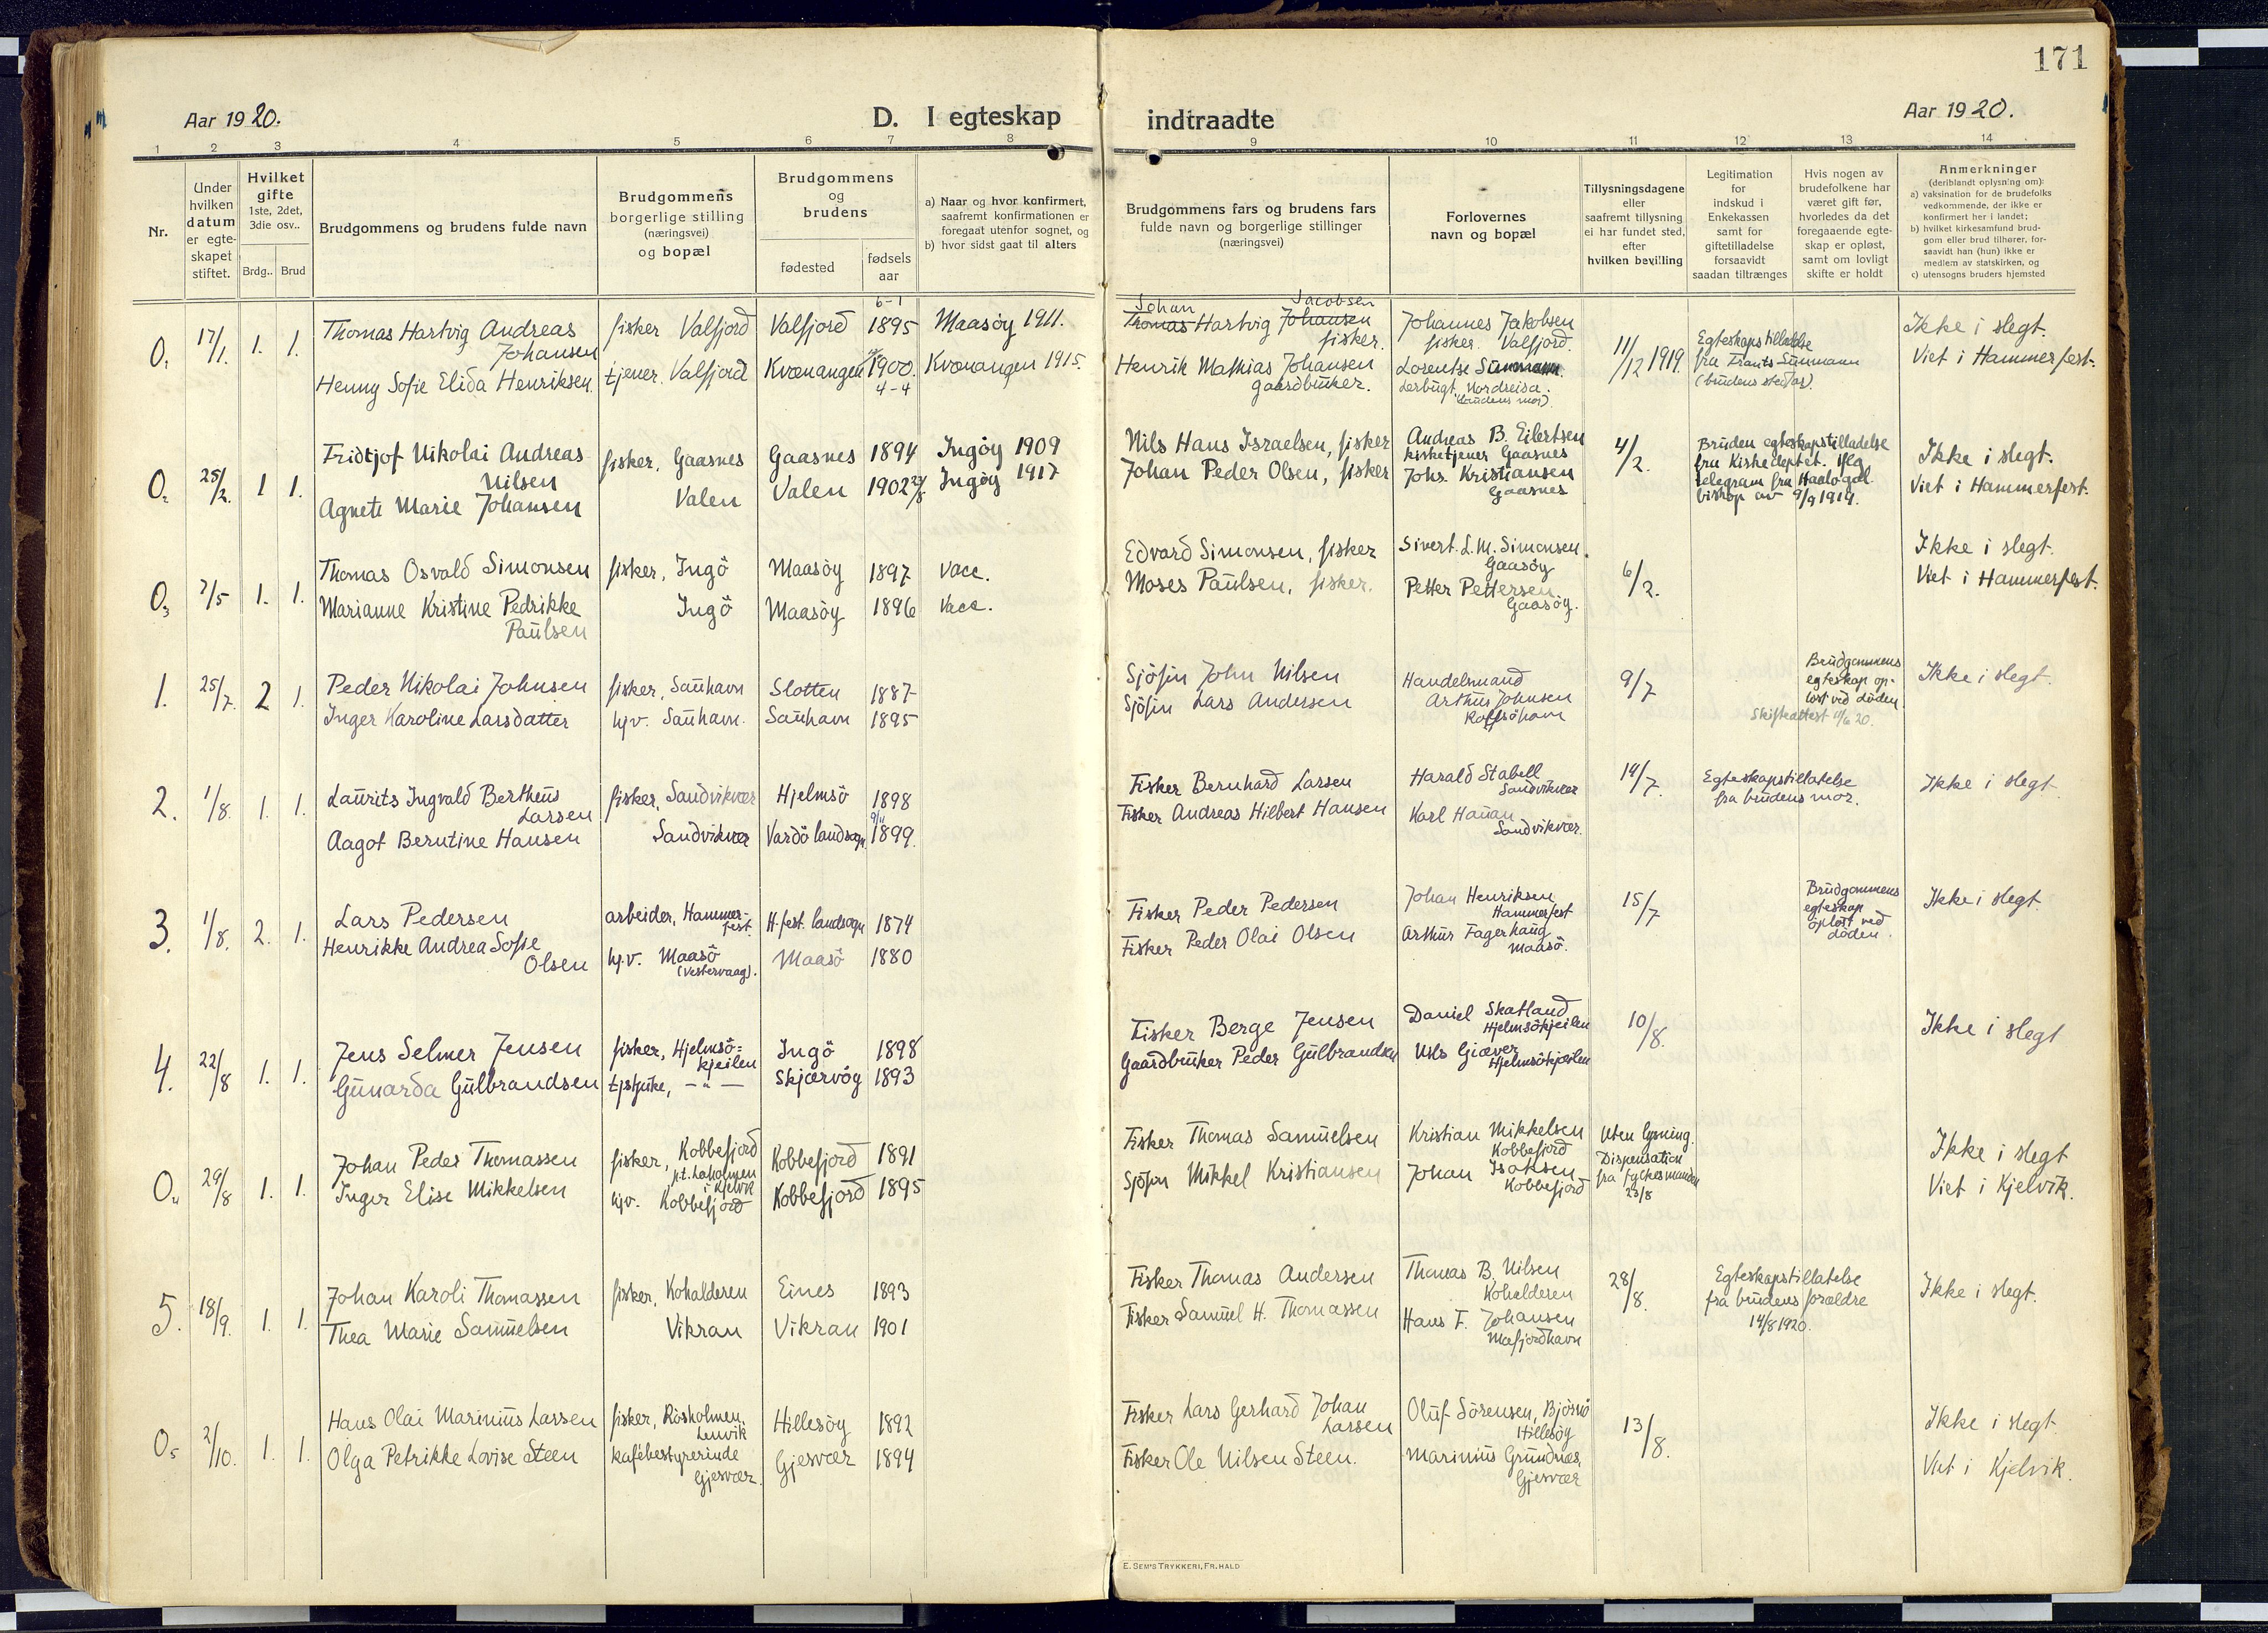 171
Aar 1920.
D. I egteskap indtraadte
Aar 1920.
1 2 3 4 5 6 7 8 9 10 11 12 13 14
Nr.
Under
hvilken
datum
er egte-
skapet
stiftet.
Hvilket
gifte
1ste, 2det,
3die osv..
Brdg.. Brud
Brudgommens og brudens fulde navn
Brudgommens
borgerlige stilling
(næringsvei)
og bopæl
Brudgommens
og
brudens
fødested
fødsels
aar
a) Naar og hvor konfirmert,
saafremt konfirmationen er
foregaat utenfor sognet, og
b) hvor sidst gaat til alters
Brudgommens fars og brudens fars
fulde navn og borgerlige stillinger
(næringsvei)
Forlovernes
navn og bopæl
Tillysningsdagene
eller
saafremt tillysning
ei har fundet sted,
efter
hvilken bevilling
Legitimation
for
indskud i
Enkekassen
samt for
giftetilladelse
forsaavidt
saadan tiltrænges
Hvis nogen av
brudefolkene har
været gift før,
hvorledes da det
foregaaende egte-
skap er opløst,
samt om lovligt
skifte er holdt
Anmerkninger
(deriblandt oplysning om):
a) vaksination for de brudefolks
vedkommende, der ikke er
konfirmert her i landet;
b) hvilket kirkesamfund brud-
gom eller brud tilhører, for-
saavidt han (hun) ikke er
medlem av statskirken, og
c) utensogns bruders hjemsted
0₁ 17/1. 1. 1.
Thomas Hartvig Andreas
Johansen
Henny Sofie Elida Henriksen.
fisker Valfjord
tjener. Valfjord
Valfjord
Kvænangen
6-1
1895
1900.
4-4
Maasöy 1911.
Kvænangen 1915.
Johan Jacobsen
Thomas Hartvig Johansen
fisker.
Henrik Mathias Johansen
gaardbruker.
Johannes Jakobsen
fisker. Valfjord
Lorentse Sunmann.
Lerbugt Nordreisa.
(brudens mor).
11/12 1919.
Egteskapstilladelse
fra Frants Sunmann
(brudens stedfar).
Ikke i slegt.
Viet i Hammerfest.
0₂ 25/2. 1 1.
Fridtjof Nikolai Andreas
Nilsen
Agnete Marie Johansen
fisker, Gaasnes
Valen
Gaasnes
Valen
1894
1902
Ingöy 1909
Ingöy 1917
Nils Hans Israelsen, fisker
Johan Peder Olsen, fisker
Andreas B. Eilertsen
kirketjener Gaasnes
Johs. Kristiansen
Gaasnes
4/2.
Bruden egteskapstilladelse
fra Kirkedeptet. iflg
telegram fra Haalogal.
biskop av 9/9 1919.
Ikke i slegt.
Viet i Hammerfest.
0₃ 7/5 1. 1.
Thomas Osvald Simonsen
Marianne Kristine Pedrikke
Paulsen
fisker, Ingö
Ingö
Maasöy
Maasöy
1897
1896
vacc.
vacc.
Edvard Simonsen, fisker
Moses Paulsen, fisker.
Sivert. L.M. Simonsen.
Gaasöy
Petter Pettersen
Gaasöy.
6/2.
Ikke i slegt.
Viet i Hammerfest.
1. 25/7. 2 1.
Peder Nikolai Johnsen
Inger Karoline Larsdatter
fisker, Sauhavn
hjv. Sauhavn.
Slotten
Sauhavn
1887
1895
Sjöfin John Nilsen
Sjöfin Lars Andersen
Handelsmand
Arthur Johnsen
Rolfsöhavn
9/7
Brudgommens
egteskap op-
löst ved döden.
Skifteattest 11/6 20.
Ikke i slegt.
2. 1/8. 1. 1.
Laurits Ingvald Bertheus
Larsen
Aagot Berntine Hansen
fisker, Sandvikvær
Sandvikvær
Hjelmsö
Vardö landsogn
1898
9/11
1899.
Fisker Bernhard Larsen
Fisker Andreas Hilbert Hansen
Harald Stabell
Sandvikvær
Karl Hauan
Sandvikvær.
14/7.
Egteskapstillatelse
fra brudens mor.
Ikke i slegt
3. 1/8. 2. 1.
Lars Pedersen
Henrikke Andrea Sofie
Olsen
arbeider, Hammer-
fest.
hj.v. Maasö
(Vestervaag).
H.fest. landsogn
Maasö
1874
1880
Fisker Peder Pedersen
Fisker Peder Olai Olsen
Johan Henriksen
Hammerfest
Arthur Fagerhaug
Maasö.
15/7
Brudgommens
egteskap
oplöst ved
döden.
Ikke i slegt.
4. 22/8 1. 1.
Jens Selmer Jensen
Gunarda Gulbrandsen
fisker, Hjelmsö=
kjeilen
tjstpike, —"—
Ingö
Skjærvöy
1898
1893
Fisker Berge Jensen
Gaardbruker Peder Gulbrandsen
Daniel Skatland
Hjelmsökjeilen
Nils Giæver
Hjelmsökjeilen
10/8.
Ikke i slegt
0₄ 29/8 1. 1.
Johan Peder Thomassen
Inger Elise Mikkelsen
fisker, Kobbefjord
p.t. Laholmen
i Kjelvik
hjv. Kobbefjord
Kobbefjord
Kobbefjord
1891
1895
Fisker Thomas Samuelsen
Sjöfin Mikkel Kristiansen
Kristian Mikkelsen
Kobbefjord
Johan Isaksen
Kobbefjord
Uten lysning.
Dispensation
fra fylkesmanden
23/8
Ikke i slegt
Viet i Kjelvik.
5. 18/9. 1. 1.
Johan Karoli Thomassen
Thea Marie Samuelsen
fisker, Kohalderen
Vikran
Eines
Vikran
1893
1901
Fisker Thomas Andersen
Fisker Samuel H. Thomassen
Thomas B. Nilsen
Kohalderen
Hans F. Johansen
Mafjordhavn
28/8.
Egteskapstillatelse
fra brudens forældre
14/8 1920.
Ikke i slegt.
0₅ 2/10. 1. 1.
Hans Olai Marinius Larsen
Olga Petrikke Lovise Steen
fisker, Rosholmen.
Lenvik
kafébestyrerinde
Gjesvær.
Hillesöy
Gjesvær
1892
1894
Fisker Lars Gerhard Johan
Larsen
Fisker Ole Nilsen Steen.
Oluf Sörensen, Björnö
Hillesöy
Marinius Grundnes,
Gjesvær
13/8.
Ikke i slegt
Viet i Kjelvik.
E. SEM'S TRYKKERI, FR.HALD